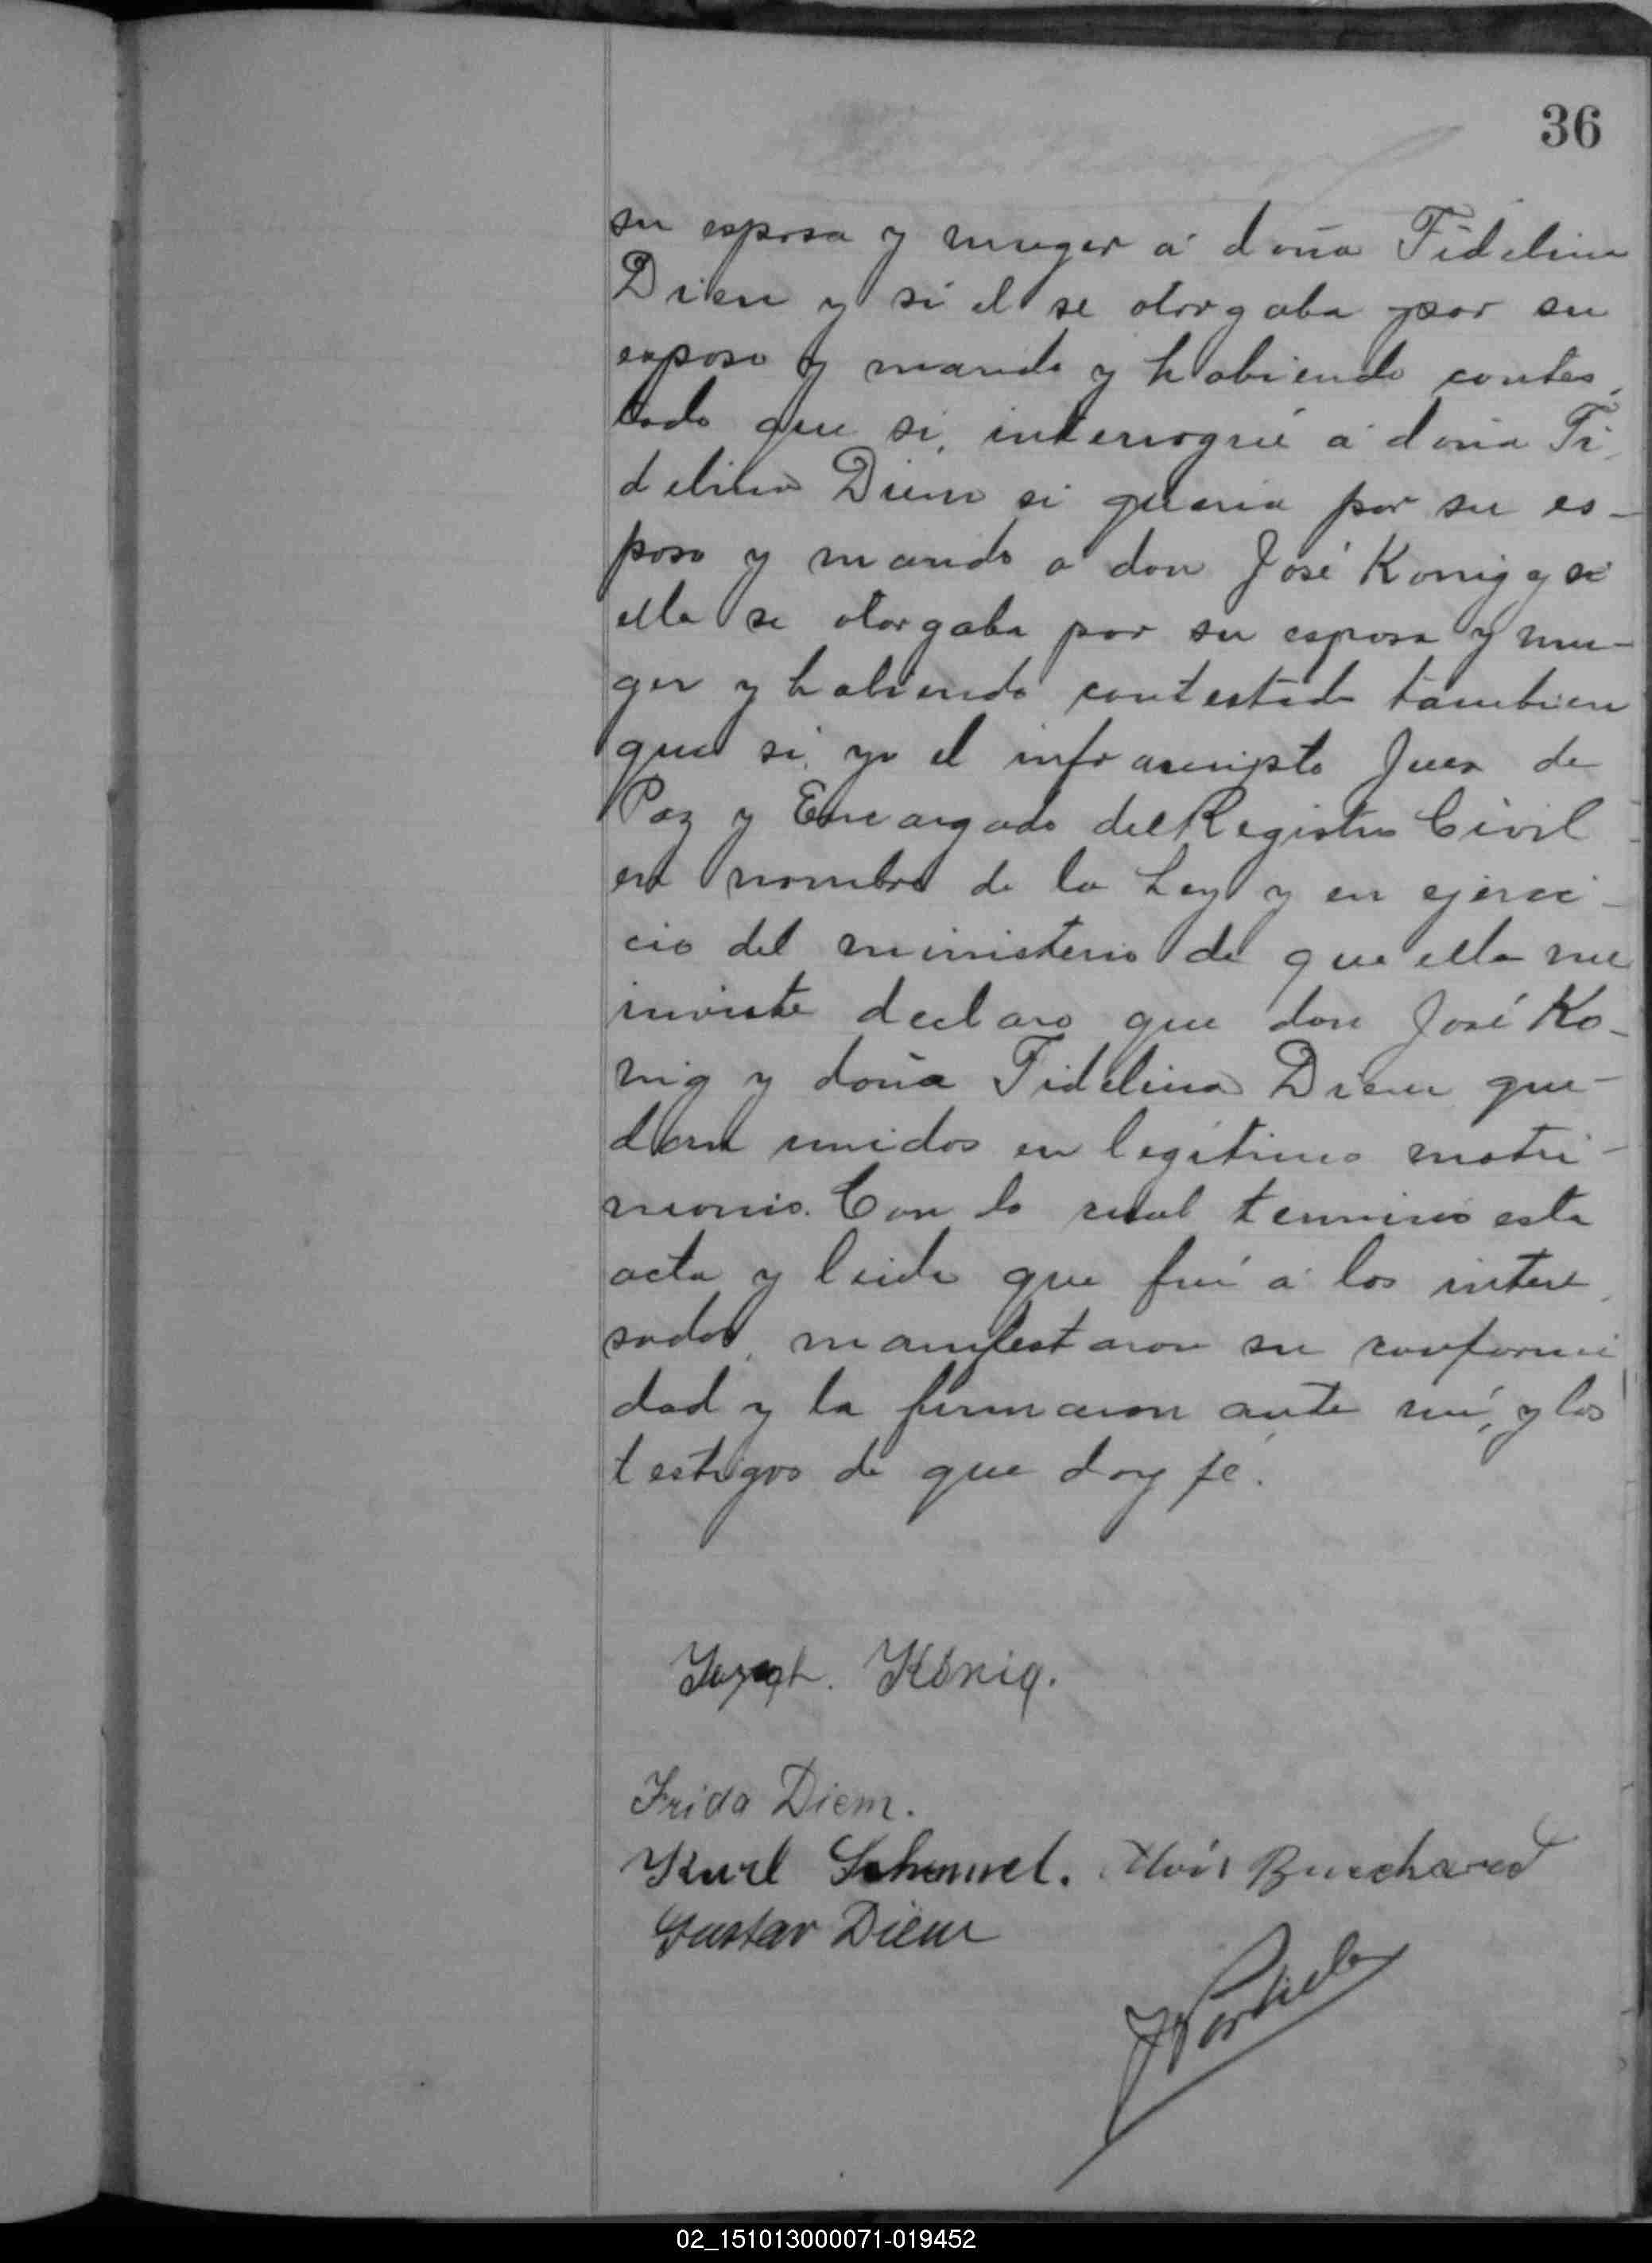 36
su esposa y muger á doña Fidelina
Diem y si el se otorgaba por su
esposo y marido y habiendo contes
tado que si, interrogué á doña Fi
delina Diem si queria por su es-
poso y marido á don José Konig y si
ella se otorgaba por su esposa y mu-
ger y habiendo contestado tambien
que si, yo el infrascripto Juez de
Paz y Encargado del Registro Civil
en nombre de la Ley y en ejerci-
cio del ministerio de que ella me
inviste declaro que don José Ko-
nig y doña Fidelina Diem que-
dan unidos en legítimo matri-
monio. Con lo cual termino esta
acta y leida que fué á los intere
sados, manifestaron su conformi
dad y la firmaron ante mí, y los
testigos de que doy fé.
Joseph. König.
Frida Diem.
Karl Schemmel. Alois Burchard
Gustav Diem
02_151013000071-019452